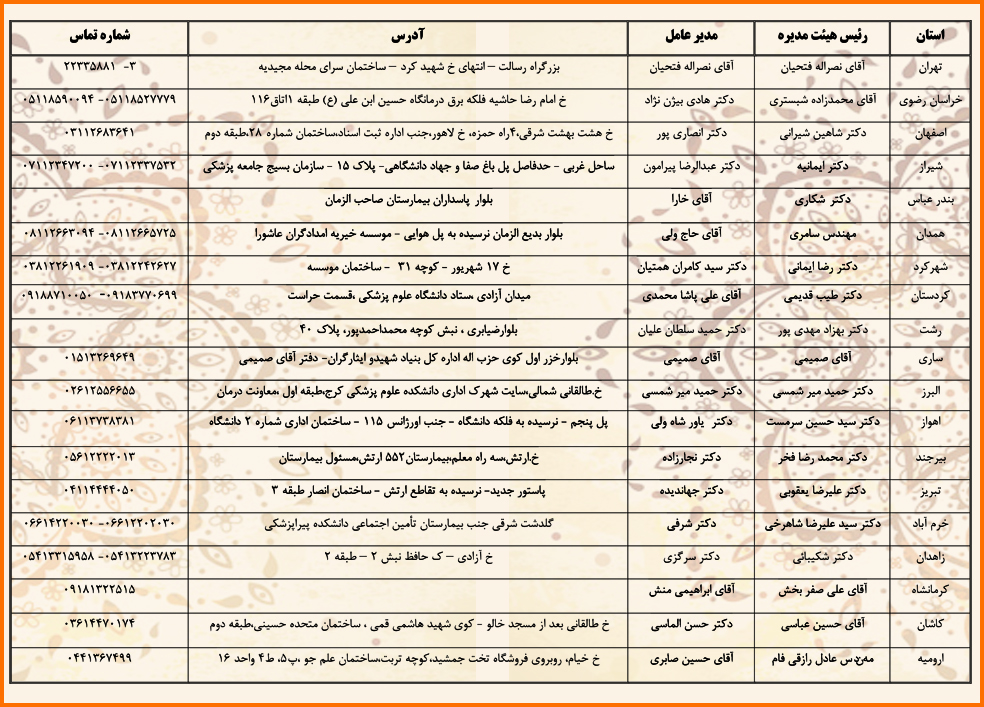 استان رئیس هیئت مدیره مدیر عامل آدرس شماره تماس
تهران آقای نصراله فتحیان آقای نصراله فتحیان بزرگراه رسالت – انتهای خ شهید کرد – ساختمان سرای محله مجیدیه ۳- ۲۲۳۳۵۸۸۱
خراسان رضوی آقای محمدزاده شبستری دکتر هادی بیژن نژاد خ امام رضا حاشیه فلکه برق درمانگاه حسین ابن علی (ع) طبقه ۱اتاق۱۱۶ ۰۵۱۱۸۵۲۷۷۷۹- ۰۵۱۱۸۵۹۰۰۹۴
اصفهان دکتر شاهین شیرانی دکتر انصاری پور خ هشت بهشت شرقی،۴راه حمزه، خ لاهور،جنب اداره ثبت اسناد،ساختمان شماره ۲۸،طبقه دوم ۰۳۱۱۲۶۸۳۶۴۱
شیراز دکتر ایمانیه دکتر عبدالرضا پیرامون ساحل غربی - حدفاصل پل باغ صفا و جهاد دانشگاهی- پلاک ۱۵ - سازمان بسیج جامعه پزشکی ۰۷۱۱۲۳۳۷۵۳۲- ۰۷۱۱۲۳۴۷۲۰۰
بندر عباس دکتر شکاری آقای خارا بلوار پاسداران بیمارستان صاحب الزمان
همدان مهندس سامری آقای حاج ولی بلوار بدیع الزمان نرسیده به پل هوایی - موسسه خیریه امدادگران عاشورا ۰۸۱۱۲۶۶۵۷۲۵- ۰۸۱۱۲۶۶۳۰۹۴
شهرکرد دکتر رضا ایمانی دکتر سید کامران همتیان خ ۱۷ شهریور - کوچه ۳۱ - ساختمان موسسه ۰۳۸۱۲۲۴۲۶۲۷- ۰۳۸۱۲۲۶۱۹۰۹
کردستان دکتر طیب قدیمی آقای علی پاشا محمدی میدان آزادی ،ستاد دانشگاه علوم پزشکی ،قسمت حراست ۰۹۱۸۳۷۷۰۶۹۹- ۰۹۱۸۸۷۱۰۰۵۰
رشت دکتر بهزاد مهدی پور دکتر حمید سلطان علیان بلوارضیابری ، نبش کوچه محمداحمدپور، پلاک ۴۰
ساری آقای صمیمی آقای صمیمی بلوارخزر اول کوی حزب اله اداره کل بنیاد شهیدو ایثارگران- دفتر آقای صمیمی ۰۱۵۱۳۲۶۹۶۴۹
البرز دکتر حمید میر شمسی دکتر حمید میر شمسی خ.طالقانی شمالی،سایت شهرک اداری دانشکده علوم پزشکی کرج،طبقه اول ،معاونت درمان ۰۲۶۱۲۵۵۶۶۵۵
اهواز دکتر سید حسین سرمست دکتر یاور شاه ولی پل پنجم - نرسیده به فلکه دانشگاه - جنب اورژانس ۱۱۵ - ساختمان اداری شماره ۲ دانشگاه ۰۶۱۱۳۷۳۸۳۸۱
بیرجند دکتر محمد رضا فخر دکتر نجارزاده خ.ارتش،سه راه معلم،بیمارستان۵۵۲ ارتش،مسئول بیمارستان ۰۵۶۱۲۲۲۲۰۱۳
تبریز دکتر علیرضا یعقوبی دکتر جهاندیده پاستور جدید- نرسیده به تقاطع ارتش - ساختمان انصار طبقه ۳ ۰۴۱۱۴۴۴۴۰۵۰
خرم آباد دکتر سید علیرضا شاهرخی دکتر شرفی گلدشت شرقی جنب بیمارستان تأمین اجتماعی دانشکده پیراپزشکی ۰۶۶۱۲۲۰۲۰۳۰- ۰۶۶۱۴۲۲۰۰۳۰
زاهدان دکتر شکیبائی دکتر سرگزی خ آزادی – ک حافظ نبش ۲ – طبقه ۲ ۰۵۴۱۳۲۲۳۷۸۳- ۰۵۴۱۳۳۱۵۹۵۸
کرمانشاه آقای علی صفر بخش آقای ابراهیمی منش ۰۹۱۸۱۳۲۲۵۱۵
کاشان آقای حسین عباسی دکتر حسن الماسی خ طالقانی بعد از مسجد خالو - کوی شهید هاشمی قمی ، ساختمان متحده حسینی،طبقه دوم ۰۳۶۱۴۴۷۰۱۷۴
ارومیه مهندس عادل رازقی فام آقای حسین صابری خ خیام، روبروی فروشگاه تخت جمشید،کوچه تربت،ساختمان علم جو ،پ۵، ط۴ واحد ۱۶ ۰۴۴۱۳۶۷۴۹۹